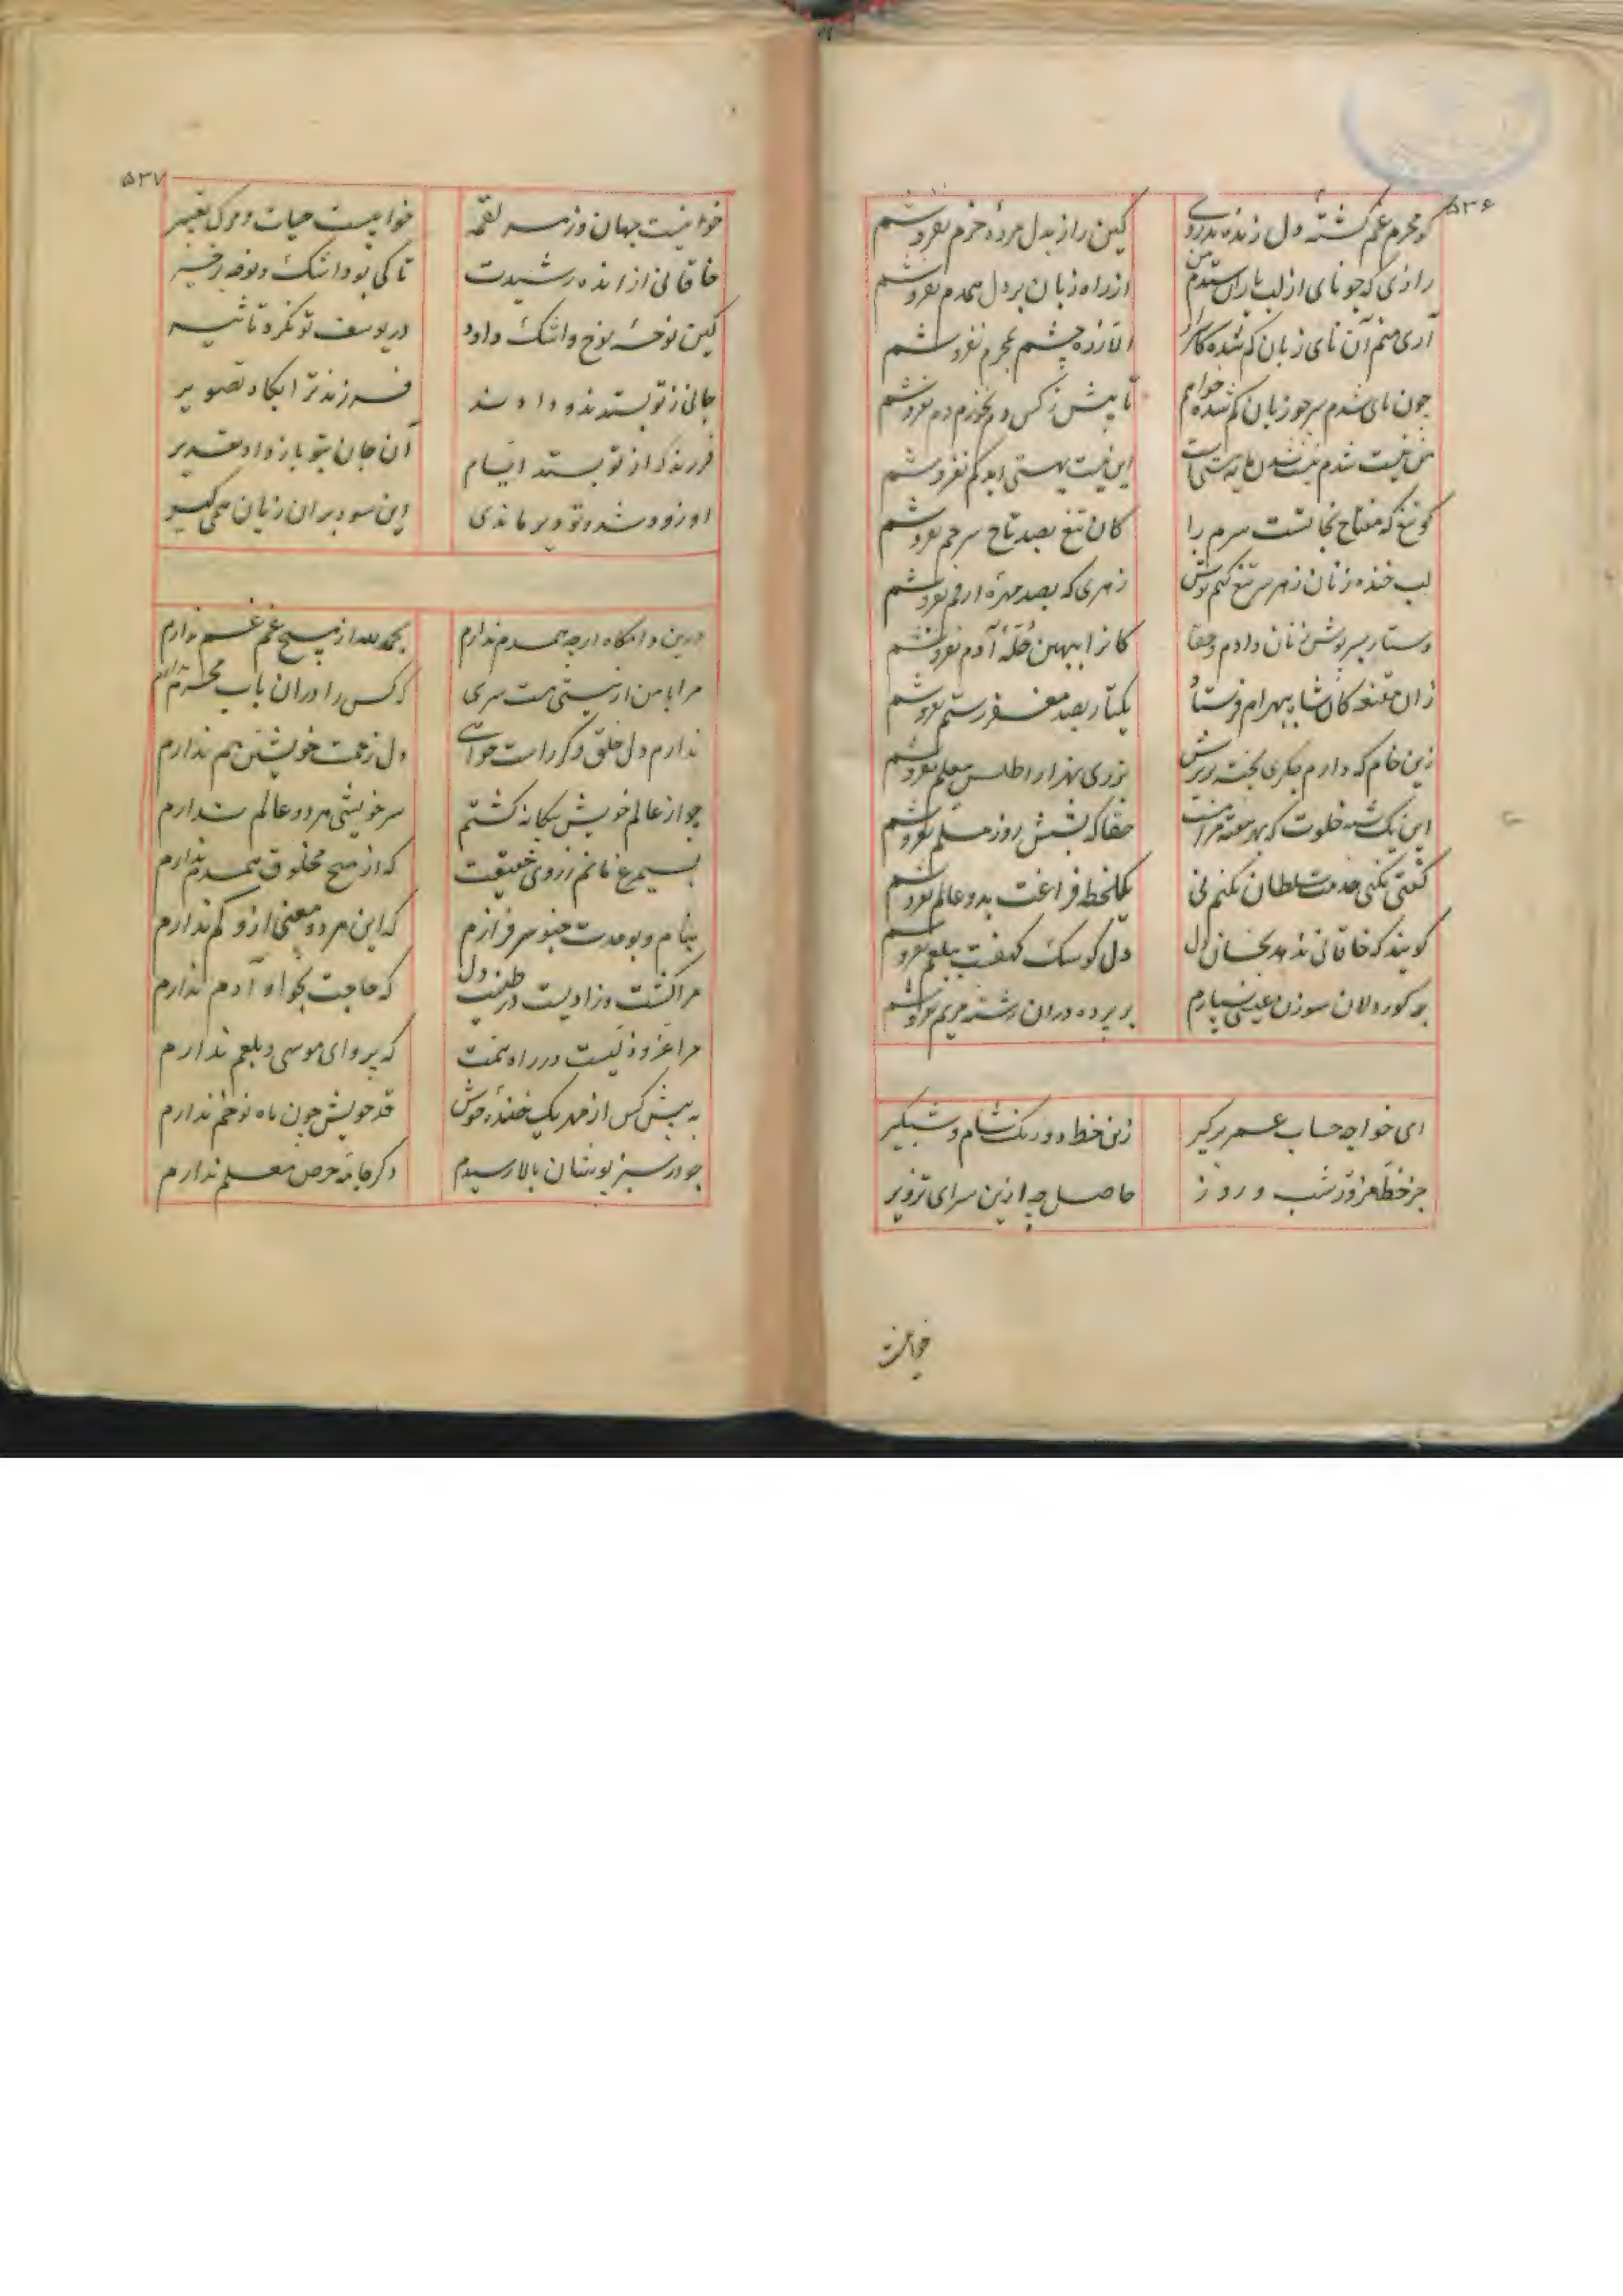 ۵۳۶
کو محرم غم کشتهٔ دل زنده بدردی کین راز بدل مردهٔ خرم نفروشم
رازی که چو نای از لب یاران ستدم من از راه زبان بر دل همدم نفروشم
آری منم آن نای زبان گم شده کاسرار الا ز ره چشم بمحرم نفروشم
چون نای شدم سر چو زبان گم شده خواهم تا پیش ز کس دم نخرم دم نفروشم
من نیست شدم نیست شدن مایه هستیست این نیست بهستی ابد کم نفروشم
کو تیغ که مفتاح نجاتست سرم را کان تیغ بصد تاج سر جم نفروشم
لب خنده زنان زهر سر تیغ کنم نوش زهری که بصد مهرهٔ ارقم نفروشم
دستار بسرپوش زنان دادم و حقا کانرا ببهین حلهٔ آدم نفروشم
زان مقنعه کان شاه ببهرام فرستاد یکتار بصد مغفر رستم نفروشم
زین خام که دارم جگری پخته بزیرش نزری بهزار اطلس معلم نفروشم
این یک شبه خلوت که بهر هفته مراست حقا که بشش روز مسلم نفروشم
گفتی نکنی خدمت سلطان نکنم نی یکلحظه فراغت بدو عالم نفروشم
گویند که خاقانی ندهد بخسان دل دل کو سگ کهفست ببلعم نفروشم
به کوردلان سوزن عیسی نسپارم بر پرده دران رشته مریم نفروشم
ای خواجه حساب عمر برگیر زین خط دو رنگ شام و شبگیر
جز خط مزور شب و روز حاصل چه ازین سرای تزویر
خوابست
۵۳۷
خوابیست جهان وزهر لقمه خوابیست حیات و مرگ تعبیر
خاقانی از انده رشیدت تا کی بود اشک و نوحه برخیر
کین نوحهٔ نوح و اشک داود در یوسف تو نکرد تاثیر
جانی ز تو بستدند و دادند فرزند ترا بگاه تصویر
فرزند که از تو بستد ایام آن جان بتو باز داد تقدیر
او زود شد و تو دیر ماندی این سود بران زیان همی گیر
درین دامگاه ارچه همدم ندارم بحمدالله از هیچ غم غم ندارم
مرا با من از نیستی هست سری که کس را دران باب محرم ندارم
ندارم دل خلق و گر راست خواهی دل زحمت خویشتن هم ندارم
چو از عالم خویش بیگانه گشتم سر خویشی هر دو عالم ندارم
بسیمرغ مانم ز روی حقیقت که از هیچ مخلوق همدم ندارم
بنام و بوحدت چنو سرفرازم که این هر دو معنی ازو کم ندارم
مرا کشت و زادیست در طینت دل که حاجت بحوا و آدم ندارم
مرا عز و ذلیست در راه همت که پروای موسی و بلعم ندارم
به پیش کس از بهر یک خندهٔ خوش قد خویش چون ماه نو خم ندارم
چو در سبزپوشان بالا رسیدم دگر جامهٔ حرص معلم ندارم